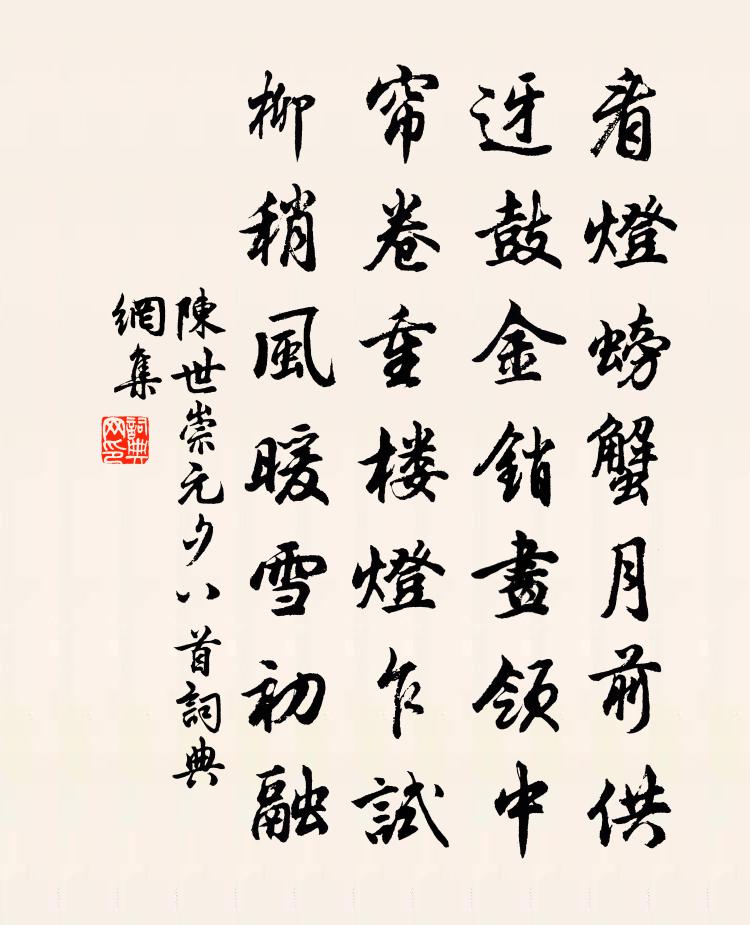 看燈螃蟹月前供
迓鼓金銷畫領中
帘卷重楼燈乍試
柳稍風暖雪初融
陳世崇元夕八首詞典
網集
詞典网印